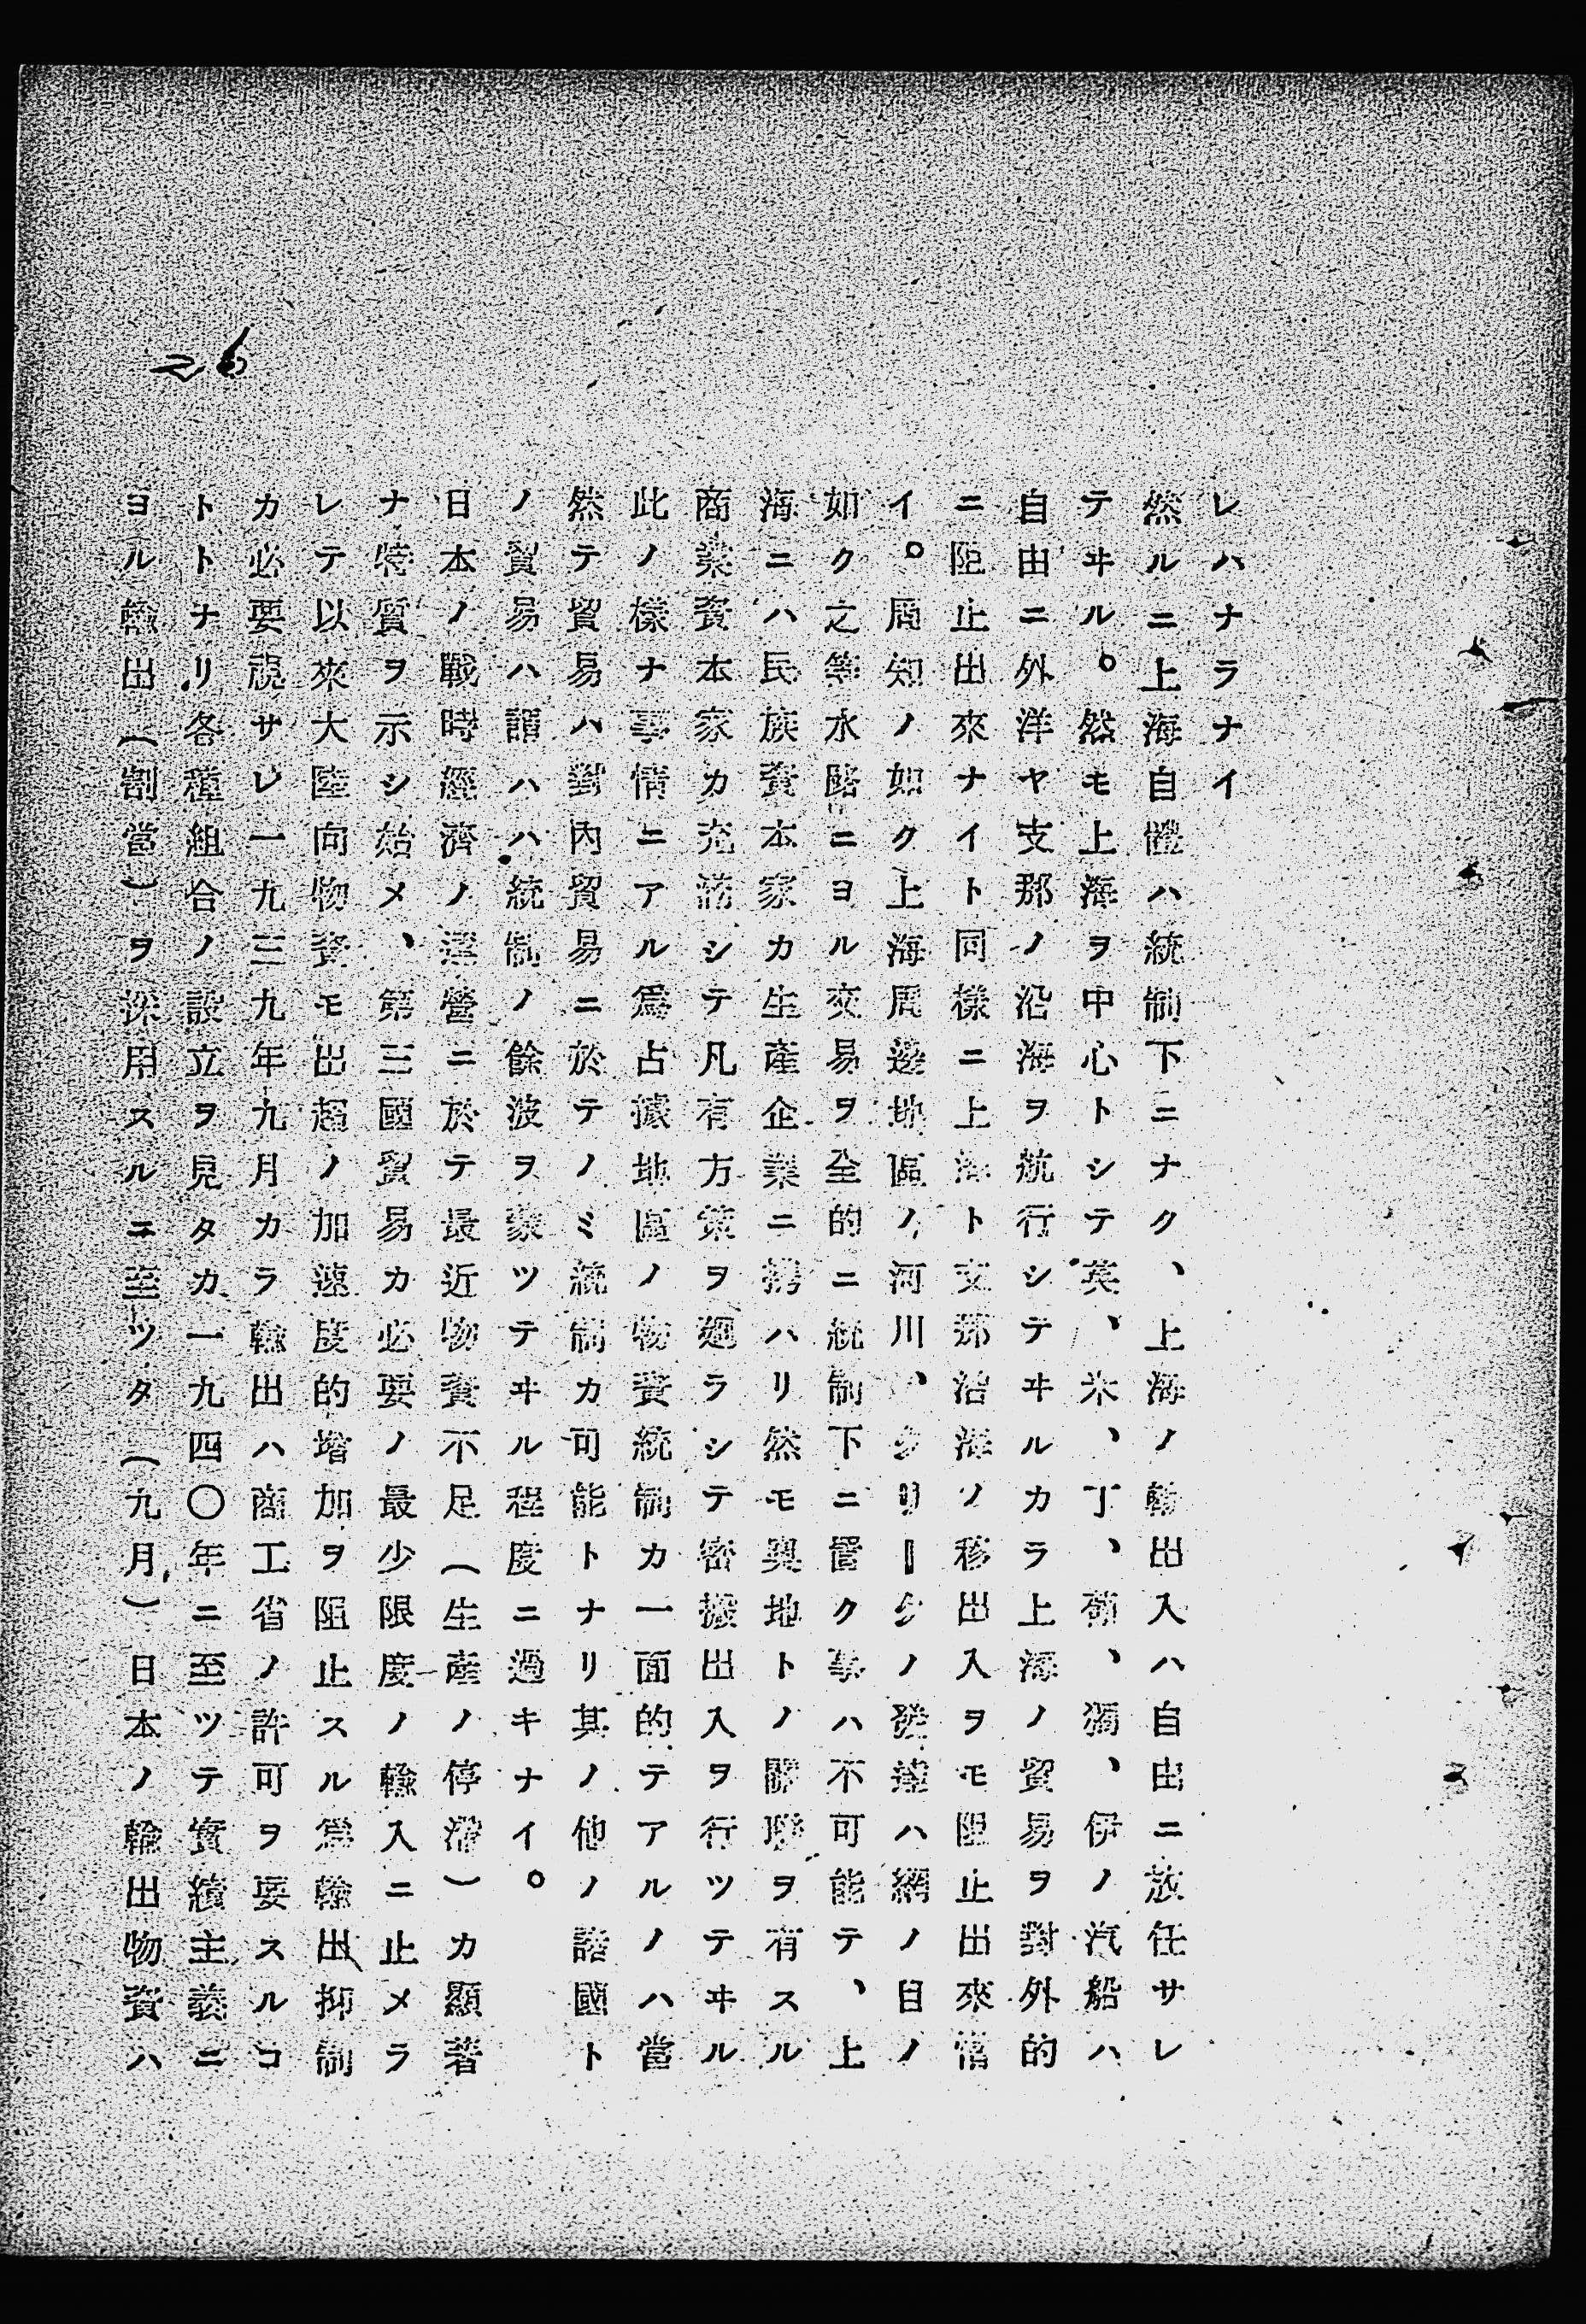 26
レハナラナイ
然ルニ上海自體ハ統制下ニナク、上海ノ輸出入ハ自由ニ放任サレ
テヰル。然モ上海ヲ中心トシテ英、米、丁、葡、獨、伊ノ汽船ハ
自由ニ外洋ヤ支那ノ沿海ヲ航行シテヰルカラ上海ノ貿易ヲ對外的
ニ阻止出來ナイト同樣ニ上海ト支那沿海ノ移出入ヲモ阻止出來
イ。周知ノ如ク上海周邊地區ノ河川、クリークノ發達ハ網ノ目ノ
如ク之等水路ニヨル交易ヲ全的ニ統制下ニ置ク事ハ不可能テ、上
海ニハ民族資本家カ生產企業ニ携ハリ然モ奧地トノ關聯ヲ有スル
商業資本家カ充滿シテ凡有方策ヲ廻ラシテ密搬出入ヲ行ツテヰル
此ノ樣ナ事情ニアル爲占據地區ノ物資統制カ一面的テアルノハ當
然テ貿易ハ對內貿易ニ於テノミ統制カ可能トナリ其ノ他ノ諸國ト
ノ貿易ハ謂ハハ統制ノ餘波ヲ蒙ツテヰル程度ニ過キナイ。
日本ノ戰時經濟ノ運營ニ於テ最近物資不足（生產ノ停滯）カ顯著
ナ特質ヲ示シ始メ、第三國貿易カ必要ノ最少限度ノ輸入ニ止メラ
レテ以來大陸向物資モ出超ノ加速度的增加ヲ阻止スル爲輸出抑制
カ必要視サレ一九三九年九月カラ輸出ハ商工省ノ許可ヲ要スルコ
トトナリ各種組合ノ設立ヲ見タカ一九四〇年ニ至ツテ實績主義ニ
ヨル輸出（割當）ヲ採用スルニ至ツタ（九月）日本ノ輸出物資ハ